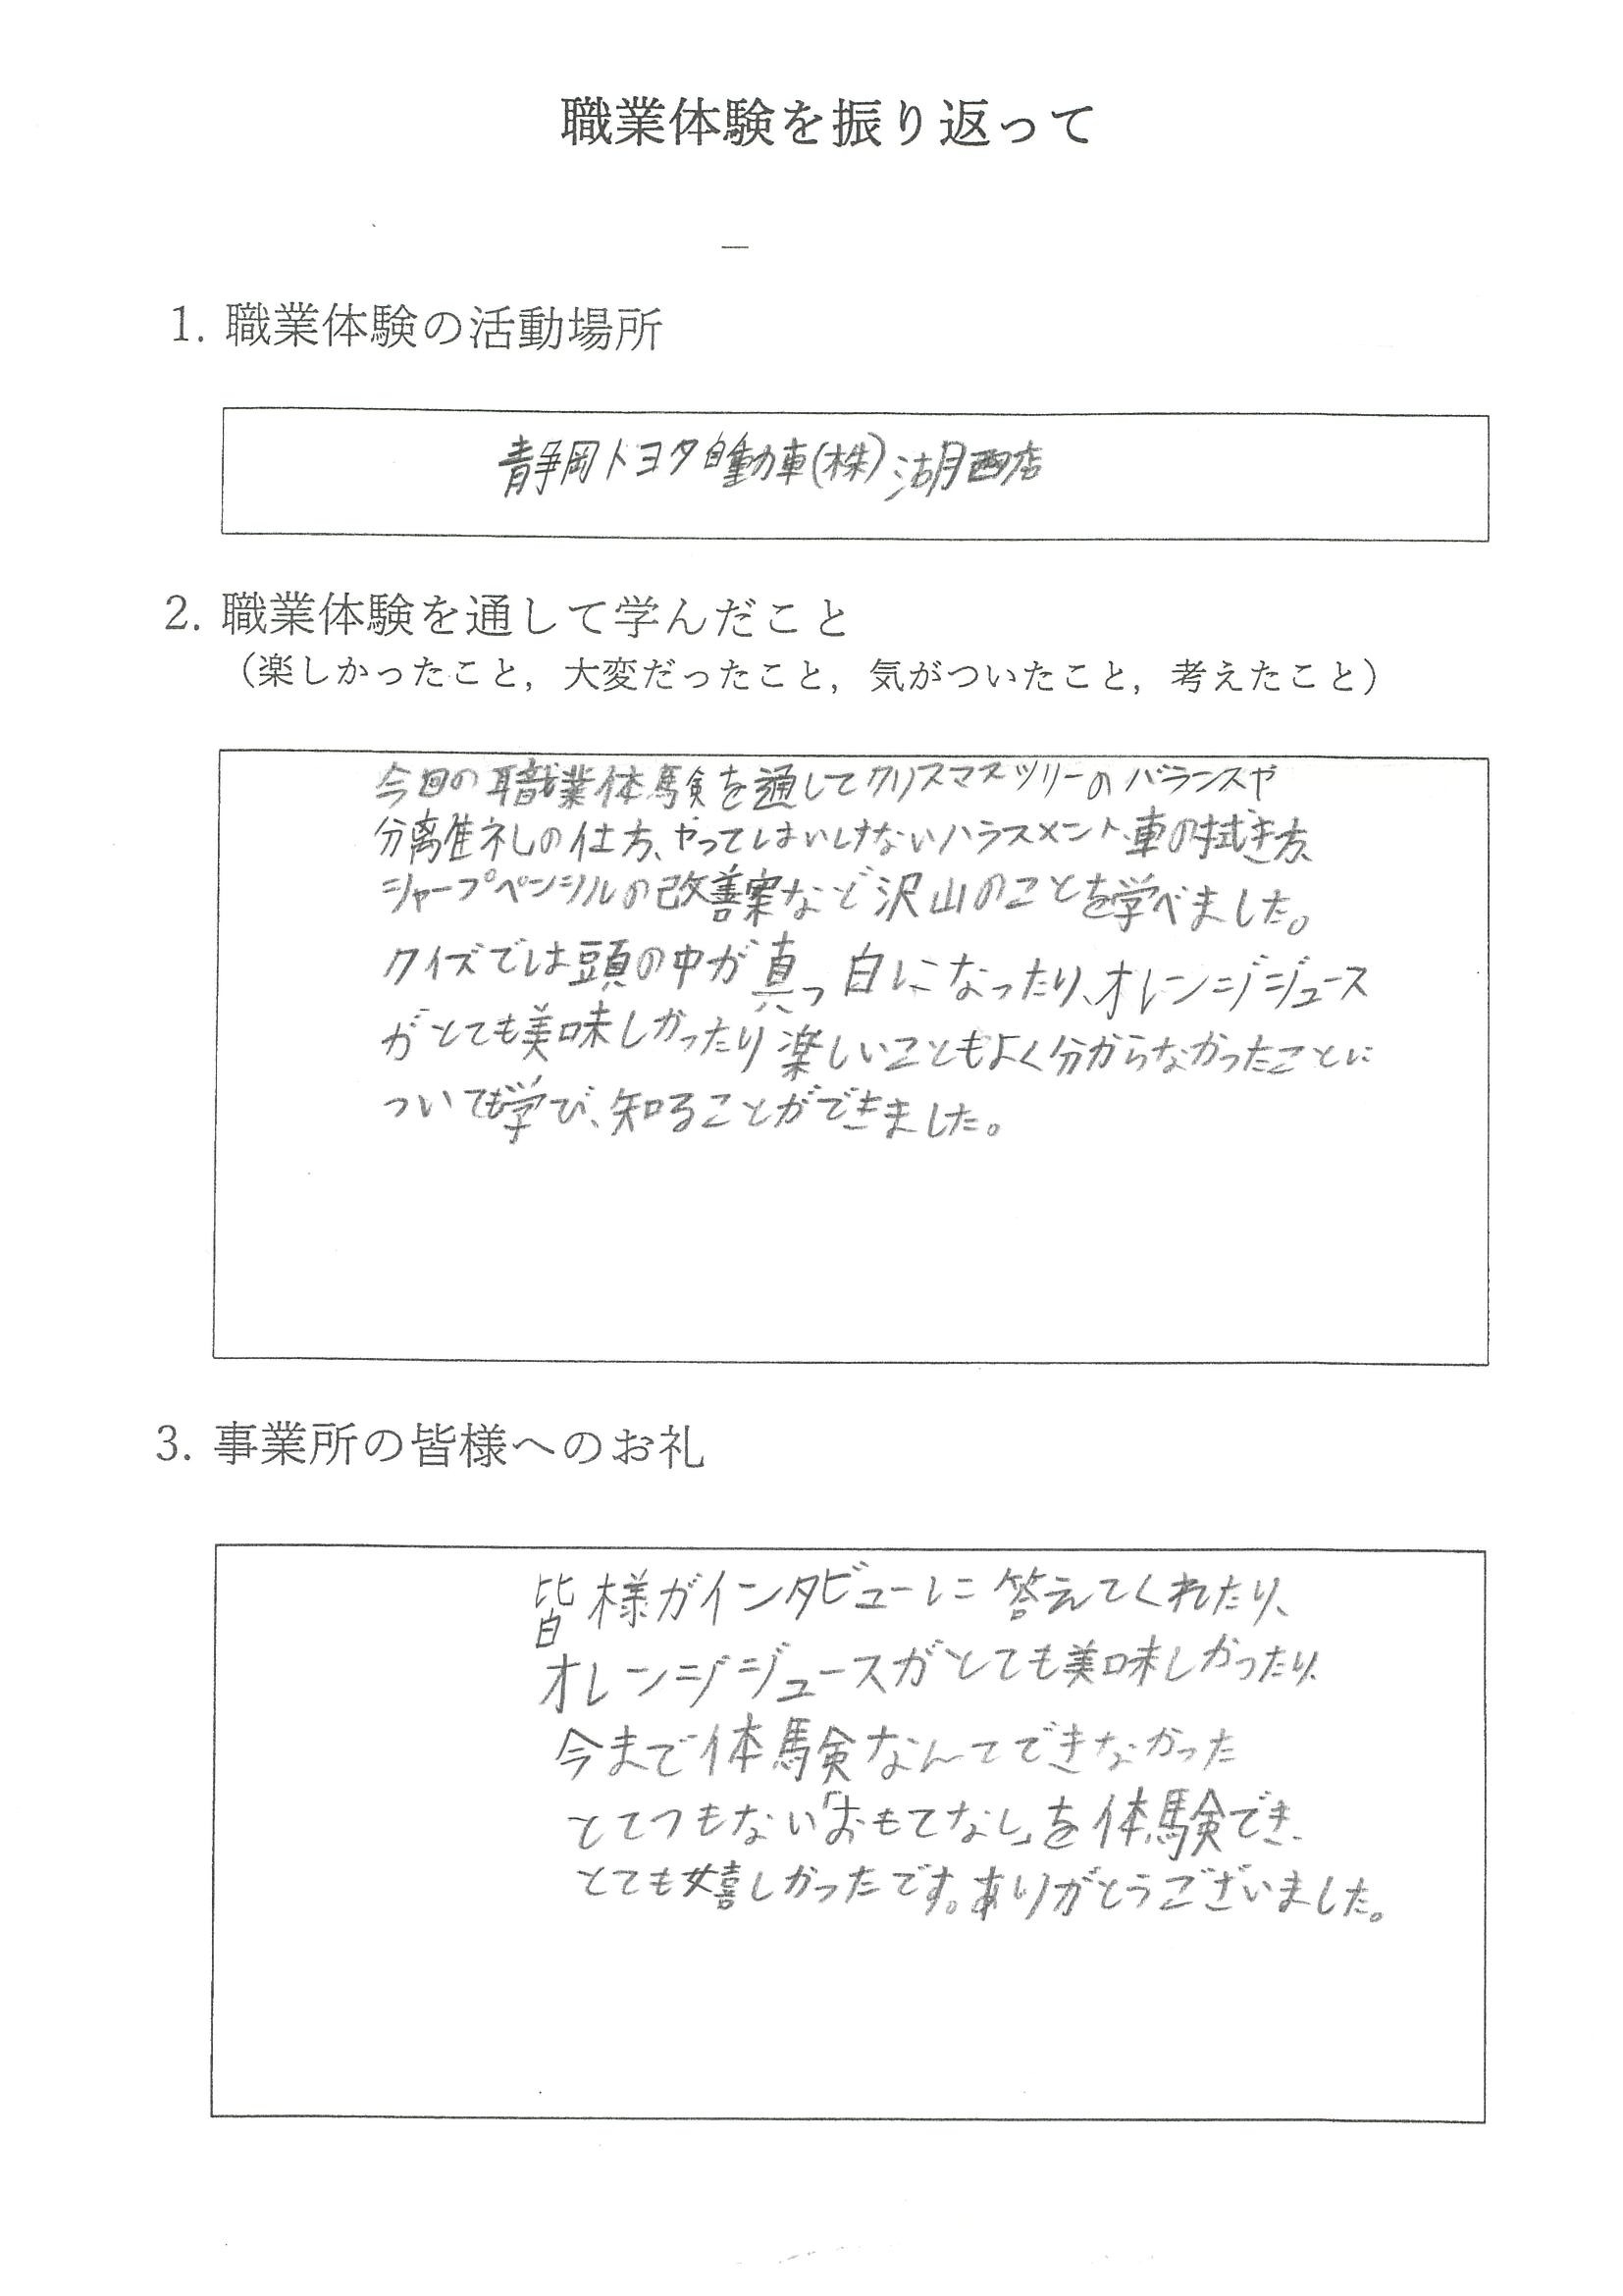 職業体験を振り返って
1. 職業体験の活動場所
静岡トヨタ自動車(株)湖西店
2. 職業体験を通して学んだこと
（楽しかったこと，大変だったこと，気がついたこと，考えたこと）
今回の職業体験を通してクリスマスツリーのバランスや
分離礼の仕方、やってはいけないハラスメント、車の拭き方、
シャープペンシルの改善案など沢山のことを学べました。
クイズでは頭の中が真っ白になったり、オレンジジュース
がとても美味しかったり楽しいこともよく分からなかったことに
ついても学び、知ることができました。
3. 事業所の皆様へのお礼
皆様がインタビューに答えてくれたり、
オレンジジュースがとても美味しかったり、
今まで体験なんてできなかった
とてつもない「おもてなし」を体験でき、
とても嬉しかったです。ありがとうございました。